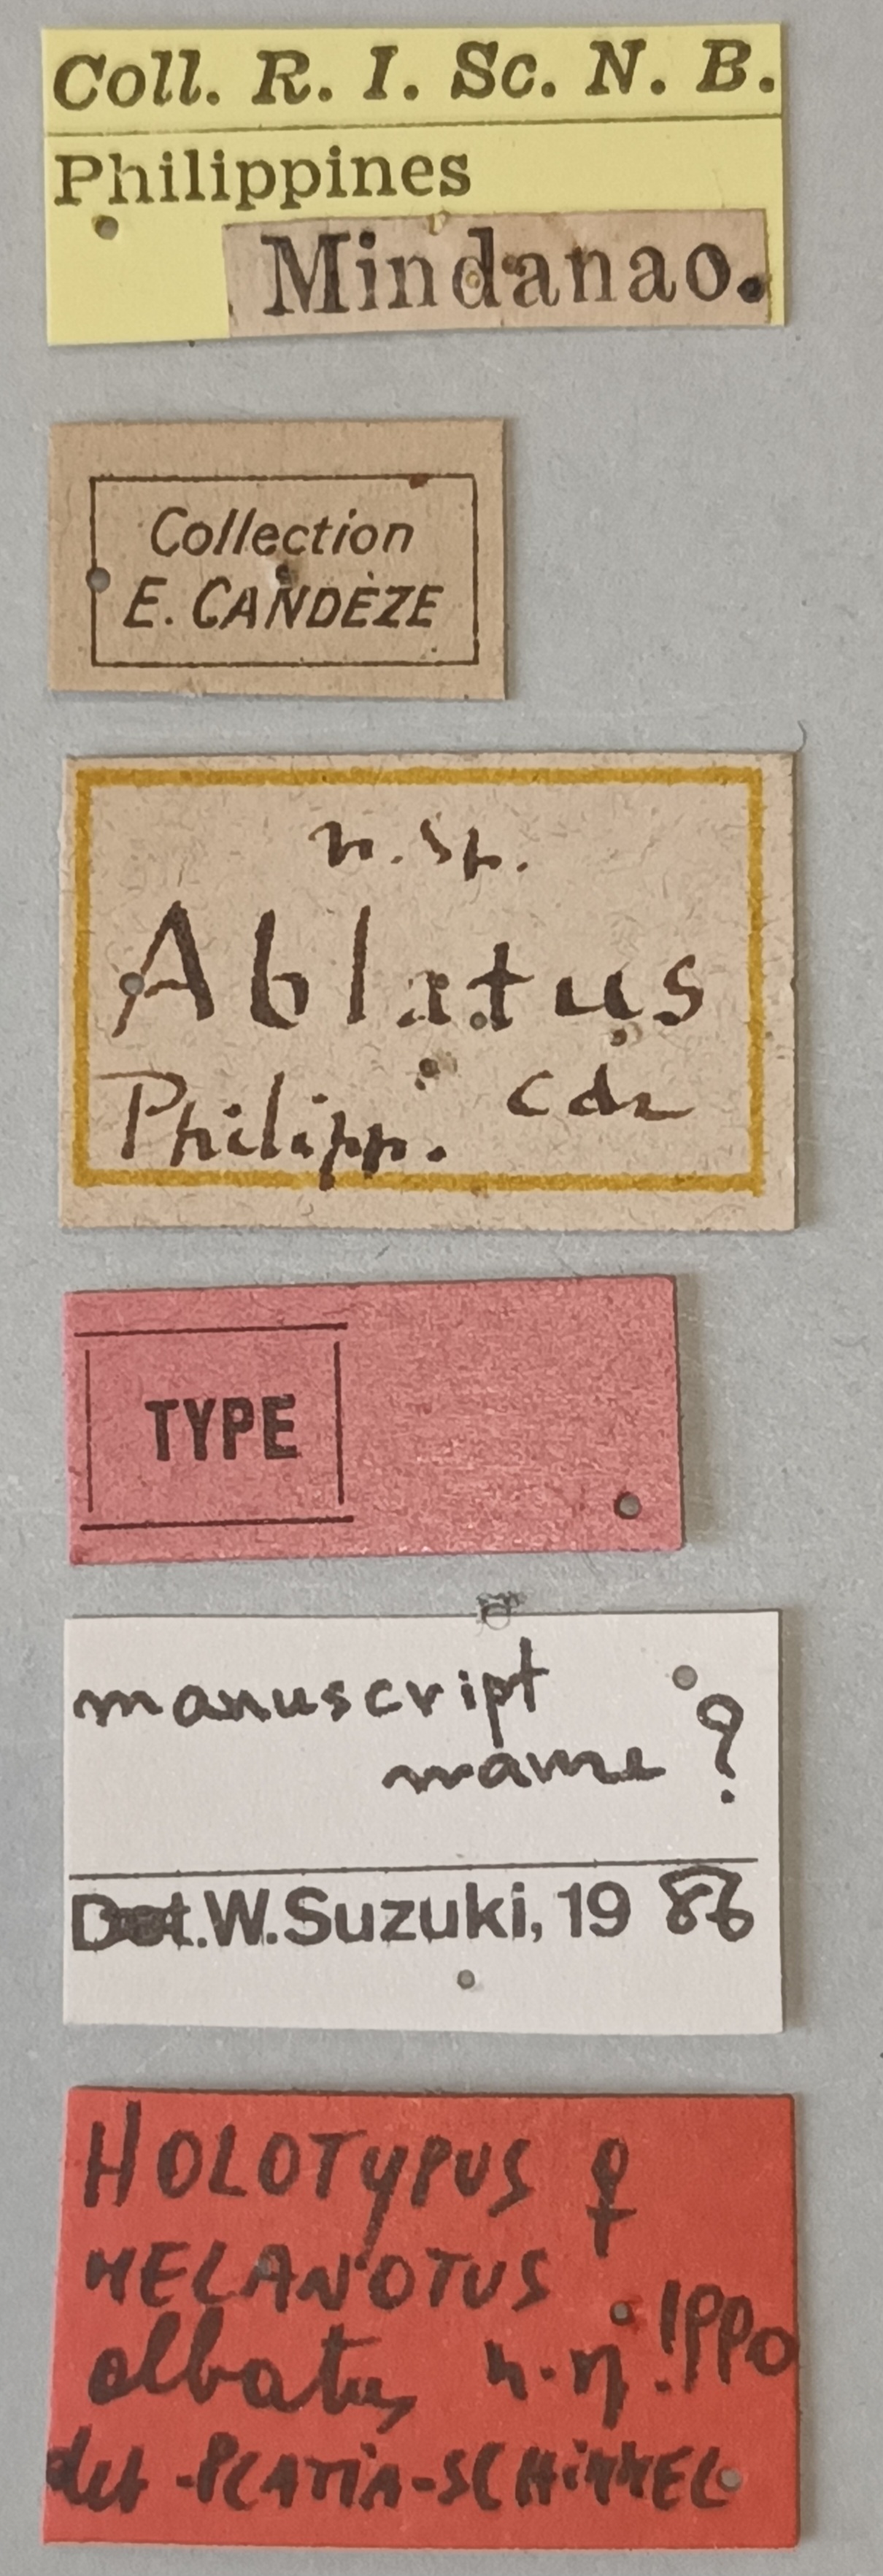 Coll. R. I. Sc. N. B.
Philippines
Mindanao.
Collection
E. CANDÈZE
n. sp.
Ablatus
Philipp. Cdz
TYPE
manuscript
name ?
Det. W. Suzuki, 19 86
HOLOTYPUS ♀
MELANOTUS
albatus
det - PLATIA - SCHIMMEL